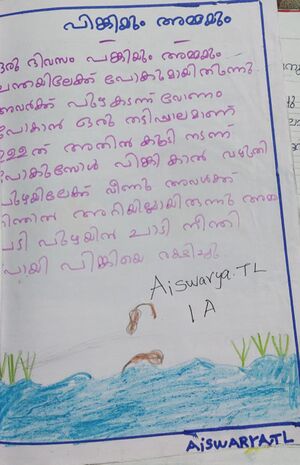 പിങ്കിയും അമ്മയും
ഒരു ദിവസം പങ്കിയും അമ്മയും
ചന്തയിലേക്ക് പോകുമായിരുന്നു
അവർക്ക് പുഴ കടന്ന് വേണം
പോകാൻ ഒരു തടിപ്പാലമാണ്
ഉള്ളത് അതിൽ കൂടി നടന്ന്
പോകുമ്പോൾ പിങ്കി കാൽ വഴുതി
പുഴയിലേക്ക് വീണു അവൾക്ക്
നീന്തൽ അറിയില്ലായിരുന്നു അമ്മ
പുഴയിൽ ചാടി നീന്തി
പോയി പിങ്കിയെ രക്ഷിച്ചു
Aiswarya.TL
1 A
AiSWARYA.TL